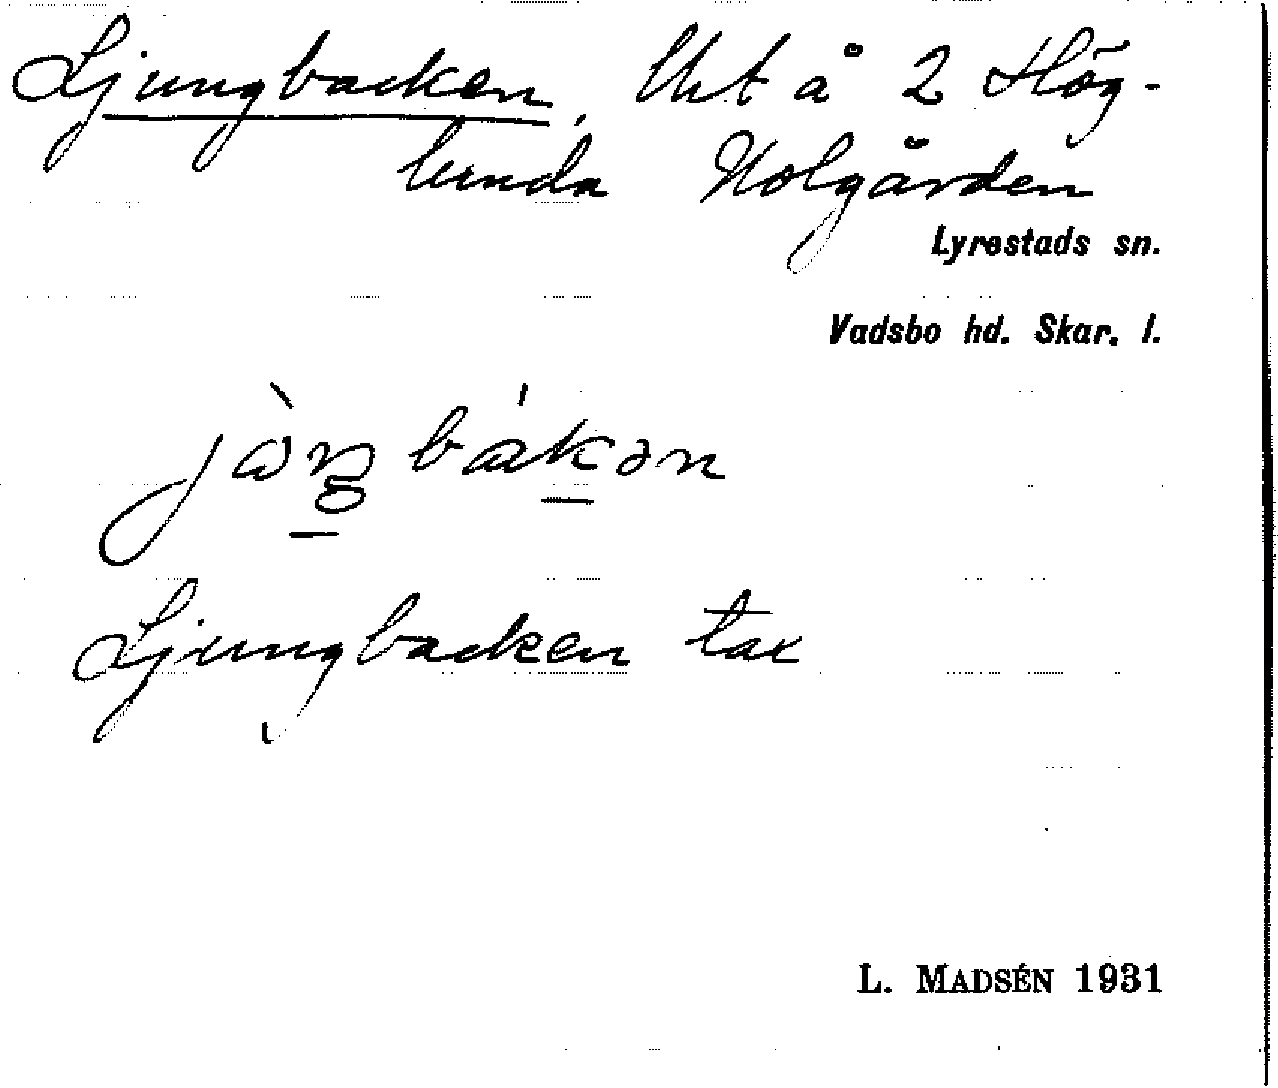 Ljungbacken, Utt å 2 Hög-
lunda Holgården
Lyrestads sn.
Vadsbo hd. Skar. l.
jὼŋbákən
Ljungbacken tax
L. MADSÉN 1931